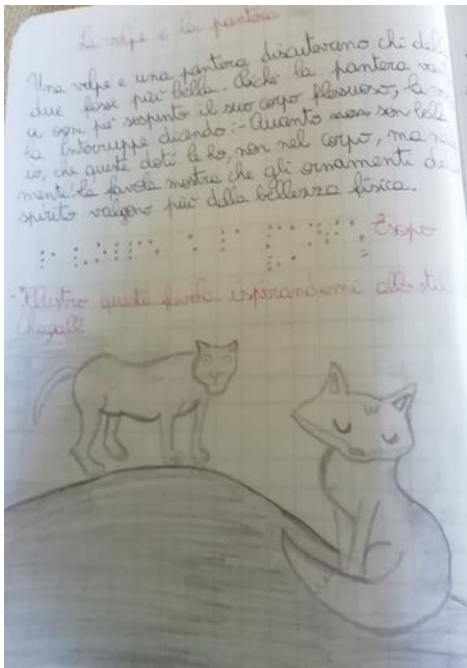 La volpe e la pantera
Una volpe e una pantera discutevano chi delle
due fosse più bella. Poiché la pantera
a ogni pie' sospinto il suo corpo flessuoso, la
la interruppe dicendo:- Quanto son bella
io, che queste doti le ho, non nel corpo, ma
mente! La favola mostra che gli ornamenti
spirito valgono più della bellezza fisica.
Esopo
-Illustro questa favola ispirandomi allo stile
Chagall